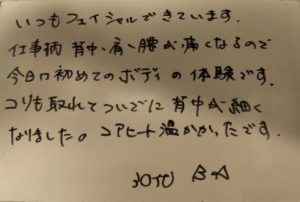 いつもフェイシャルできています.
仕事柄 背中、肩、腰が痛くなるので
今日は初めてのボディの体験です.
コリも取れてついでに背中が細く
なりました。コアヒート温かかったです.